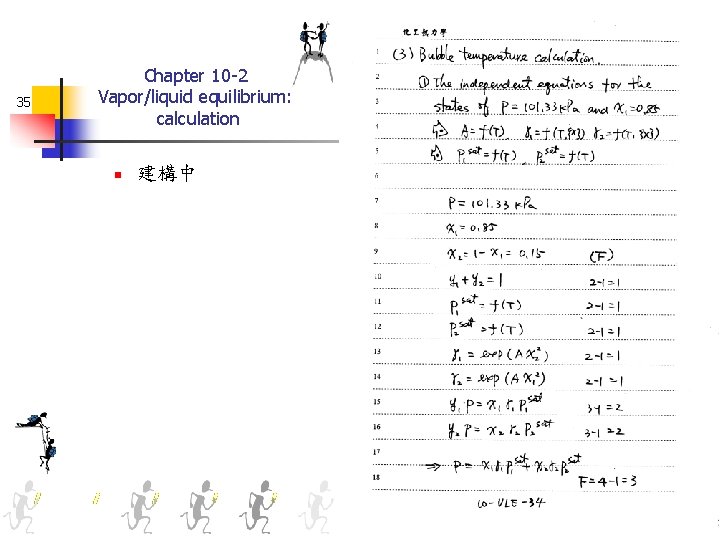 35
Chapter 10-2
Vapor/liquid equilibrium:
calculation
建構中
化工熱力學
1 (3) Bubble temperature calculation.
2 ① The independent equations for the
3 states of P = 101.33 kPa and x₁ = 0.85
4 A = f(T) γ₁ = f(T, P, x) γ₂ = f(T, P, x)
5 P₁ˢᵃᵗ = f(T) P₂ˢᵃᵗ = f(T)
6
7 P = 101.33 kPa
8 x₁ = 0.85
9 x₂ = 1 - x₁ = 0.15 (F)
10 y₁ + y₂ = 1 2-1=1
11 P₁ˢᵃᵗ = f(T) 2-1=1
12 P₂ˢᵃᵗ = f(T) 2-1=1
13 γ₁ = exp(A x₂²) 2-1=1
14 γ₂ = exp(A x₁²) 2-1=1
15 y₁ P = x₁ γ₁ P₁ˢᵃᵗ 3-1=2
16 y₂ P = x₂ γ₂ P₂ˢᵃᵗ 3-1=2
17 ⇒ P = x₁ γ₁ P₁ˢᵃᵗ + x₂ γ₂ P₂ˢᵃᵗ
18 F = 4-1 = 3
10-VLE-34